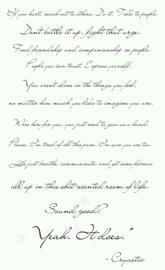 If you hurt, reach out to others. Do it. Talk to people.
Don't bottle it up, fight that urge.
Find friendship and companionship in people.
People you can trust. Express yourself.
You aren't alone in the things you feel,
no matter how much you like to imagine you are.
We're here for you, you just need to give us a hand.
Please. I'm tired of all this pain. I'm sure you are too.
Lets just breathe, communicate, and get some
all up in this shit-scented room of life.
Sound good?
Yeah. It does."
- Cryaotic